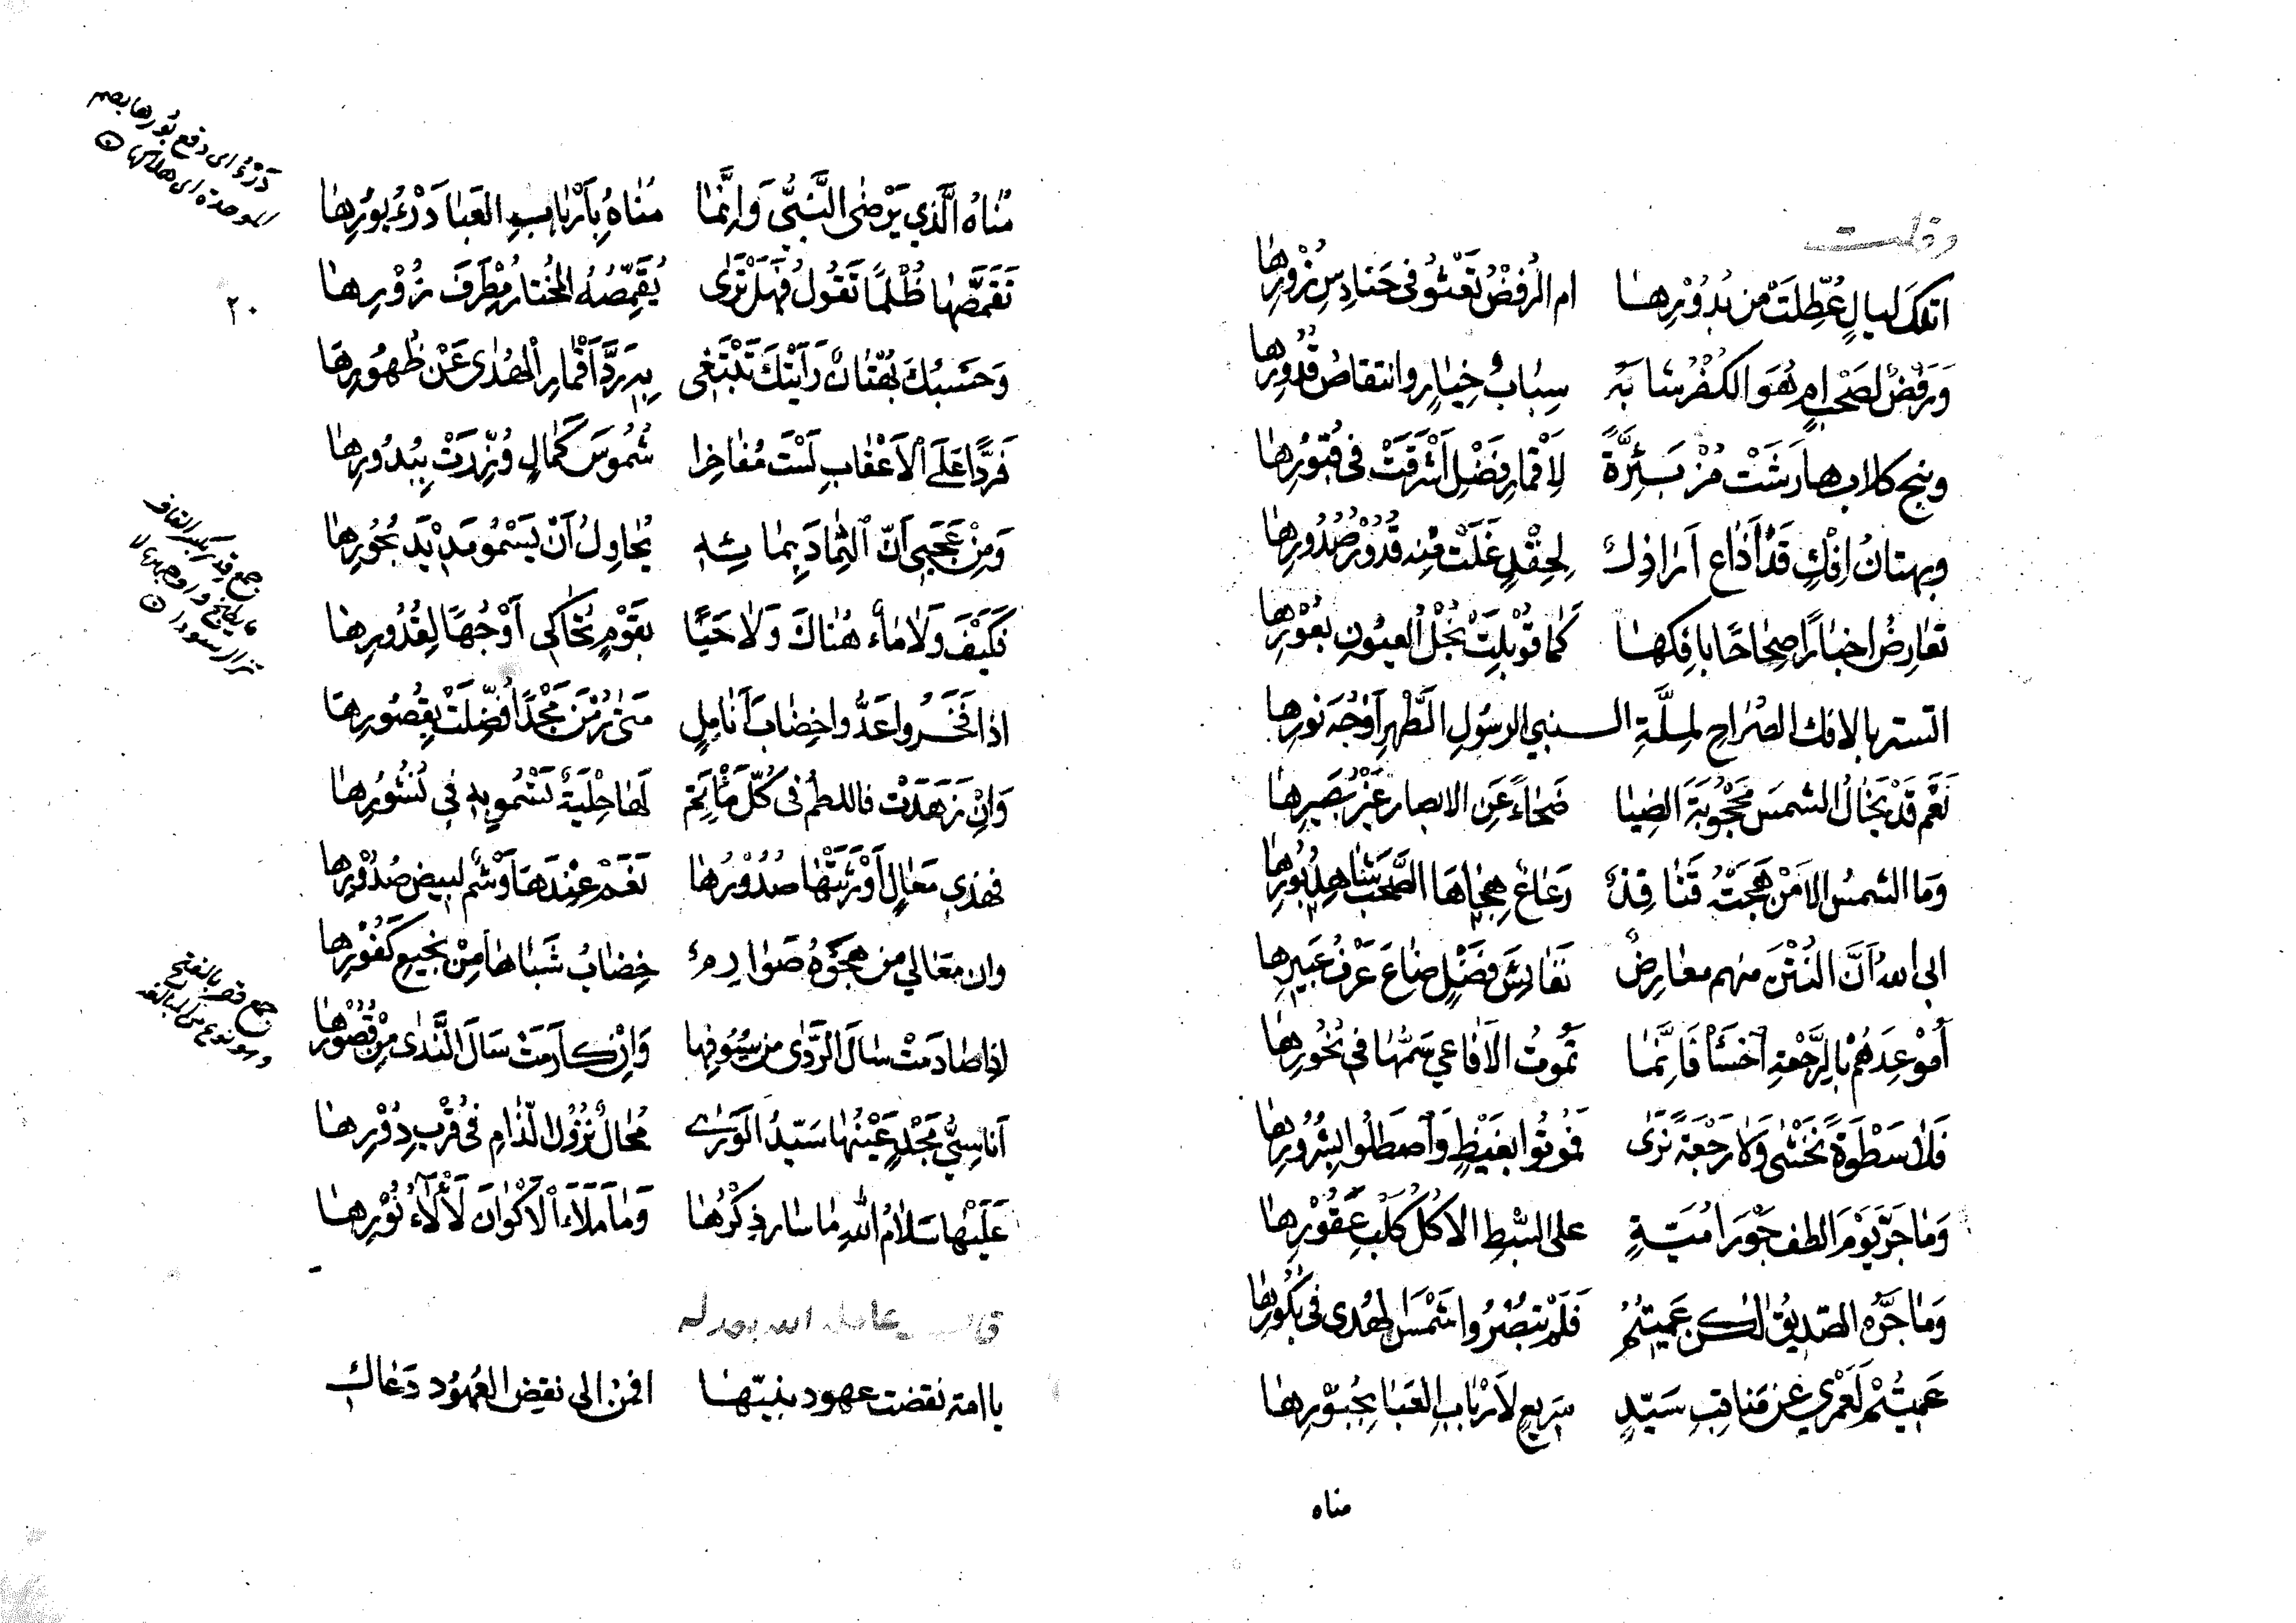 وقلت
اتلك ليالٍ عُطِّلَتْ من بُدُوْرِهـا ام الرُفضُ تَعْثُو فى حَنَادِسِ زُوْرِها
وَرَفضٌ لصَحْبٍ ام هُوَ الكُفْرُ شابَهُ سِبابُ خِيارٍ وانتقاصُ قُدُورِها
ونبح كلاب هارَشَتْ مُزْبَئِرَّةً لِاَقمارِ فَضْلٍ اَشْرَقَتْ فى قُبُوْرِها
وبهتانُ اِفْكٍ قَدْ اَذاع اَراذِلٌ لِحِقْدٍ غَلَتْ مِنه قُدُوْرُ صُدُورِها
تعارِضُ اخبارًا صِحاحًا بافِكها كما قُوْبِلَتْ نُجْلُ العيُونِ بعُوْرِها
اتستر بالافك الصُراحِ لمِلَّةِ الـنبي الرسُولِ الطُّهرِ اَوْجُهَ نورِها
نَعَم قَدْ يَخَالُ الشمسَ مَحْجُوْبَةَ الضِيا ضَحاءً عَنِ الابصار غَيْرُ بَصِيرِها
وَما الشمسُ الا مَنْ هَجَتْهُ قَنافِذٌ رَعاعٌ هِجاها الصَّحْبَ شاهِدُ بُورِها
ابى اللهُ اَنَّ النَتْنَ منهم معارِضٌ نَفائِسَ فَضْلٍ ضاعَ عَرْفُ عَبِيرِها
اَمُوْعِدَهُمْ بالرَّجْعَةِ اخْسَأْ فَاِنَّمَا تَموتُ الاَفاعي سَمُّها فى نُحُورِها
فَلا سَطْوَةً نَخْشى وَلا رَجْعَةً نَرى فَمُوتُوا بغَيْظٍ وَاصطَلُوا بِشُرُورِها
وَما جَرَّ يَوْمَ الطف جَوْرَ اُمَيَّةٍ على السِّبطِ الا كُلُّ كَلْبِ عَقُوْرِها
وَما جَرَّه الصّديقُ لكن عَمِيتُمُ فَلَمْ تبصُرُوا شَمْسَ الهُدى فى بُكُورِها
عَمِيتُمْ لَعَمْرِي عَنْ مَناقِبِ سَيّدٍ سَرِيعٍ لاَرْبابِ العَبَا بِحُبُوْرِها
مناه
مُناهُ الَّذي يَرْضى النَّبيُّ وَاِنَّمَا مُناهُ بِاَرْبابِ العَبَا دَرْءُ بُورِها
تَقَمَّصَها ظُلْمًا تَقُولُ فَهَلْ تَرَى يُقَمِّصُهُ المُختارُ مُطْرَفَ زُوْرِها
وَحَسْبُكَ بُهْتانًا رَاَيْتُكَ تَبْتَغى بِه رَدَّ اَقْمارِ الهُدى عَنْ ظُهُورِها
فَرَدًّا عَلَى الْاَعْقابِ لَسْتَ مُفاخِرا شُمُوسَ كَمالٍ وُزِّرَتْ بِبُدُورِها
وَمِنْ عَجَبى اَنّ الثِّمادَ بِما بِه يُحاوِلُ اَنْ يَسْمُو مَدِيْدَ بُحُورِها
فَكَيْفَ وَلا ماءٌ هُناكَ وَلا حَيًا بقَوْمٍ تُحاكى اَوْجُهًا لِقُدُورِها
اذا فَخَـرُوا عَدُّوا خِضابَ اَنامِلٍ مَتى رُمْنَ مَجْدًا فُضِّلَتْ بِقُصُورِها
وَاِنْ زَهَدَتْ فاللطمُ فى كُلّ مَأْتَمٍ لَها حِلْيَةٌ تَسْمُو بِه فى نُشُورِها
فهذى مَعالٍ اَوْرَثَتْها صُدُوْرُها نَعَمْ عِنْدَها وَشْم لبيض صُدُوْرِها
وان معَالي من هَجَوْهُ صَوَارِمٌ خِضابُ شَباها مِنْ نَجيعِ كَفُوْرِها
اِذا صادَمتْ سالَ الرَّدى من سُيُوفِها وَاِنْ كارَمَتْ سَالَ النَّدى مِنْ قُصُوْرِها
اَناسِيُّ مَجْدٍ عَيْنُها سَيّدُ الوَرى مُحالٌ نُزُوْلُ الذّامِ فى قُرْبِ دُوْرِها
عَلَيْها سَلامُ اللهِ ما سارَ ذِكْرُها وَما مَلَاَ الْاَكْوانَ لَأْلَاءُ نُوْرِها
قال عامله الله بعدله
يا امة نقضت عهود نبيّها افمن الى نقض العُهُود دَعاك
دَرْءُ اى دفع بُورها بضم
الموحدة اى هلاكها
٢٠
جمع قدر بكسر القاف
ما يطبخ
جمع قصر بالفتح